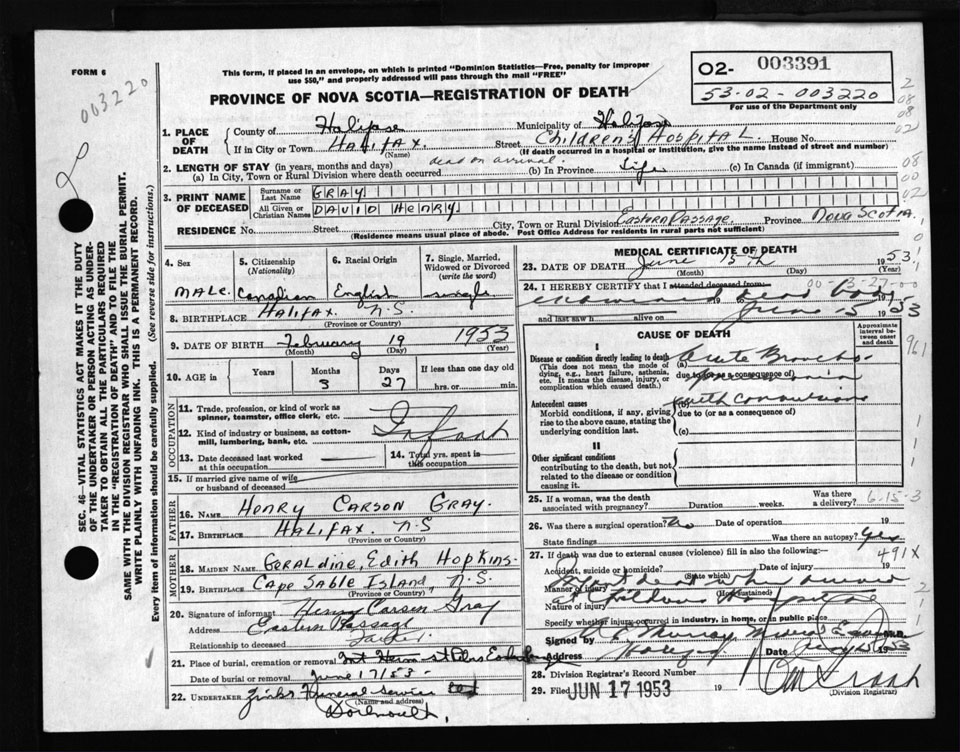 FORM 6
003220
This form, if placed in an envelope, on which is printed "Dominion Statistics—Free, penalty for improper
use $50," and properly addressed will pass through the mail "FREE"
02- 003391
53-02-003220
For use of the Department only
PROVINCE OF NOVA SCOTIA—REGISTRATION OF DEATH
1. PLACE OF DEATH
County of Halifax Municipality of Halifax
If in City or Town HALIFAX. Street Children's HOSPITAL. House No.
(Name) (If death occurred in a hospital or institution, give the name instead of street and number)
2. LENGTH OF STAY (in years, months and days)
(a) In City, Town or Rural Division where death occurred dead on arrival. (b) In Province Life (c) In Canada (if immigrant)
3. PRINT NAME OF DECEASED
Surname or Last Name GRAY
All Given or Christian Names DAVID HENRY
RESIDENCE No. Street City, Town or Rural Division Eastern Passage. Province Nova Scotia.
(Residence means usual place of abode. Post Office Address for residents in rural parts not sufficient)
SEC. 46—VITAL STATISTICS ACT MAKES IT THE DUTY
OF THE UNDERTAKER OR PERSON ACTING AS UNDERTAKER
TO OBTAIN ALL THE PARTICULARS REQUIRED
IN THE "REGISTRATION OF DEATH" AND TO FILE THE
SAME WITH THE DIVISION REGISTRAR WHO SHALL ISSUE THE BURIAL PERMIT.
WRITE PLAINLY WITH UNFADING INK. THIS IS A PERMANENT RECORD.
Every item of information should be carefully supplied. (See reverse side for instructions.)
4. Sex MALE.
5. Citizenship (Nationality) Canadian
6. Racial Origin English
7. Single, Married, Widowed or Divorced (write the word) single
8. BIRTHPLACE HALIFAX. N.S.
(Province or Country)
9. DATE OF BIRTH February 19 1953
(Month) (Day) (Year)
10. AGE in Years Months 3 Days 27 If less than one day old hrs. or min.
OCCUPATION
11. Trade, profession, or kind of work as spinner, teamster, office clerk, etc.
Infant
12. Kind of industry or business, as cotton-mill, lumbering, bank, etc.
13. Date deceased last worked at this occupation
14. Total yrs. spent in this occupation
15. If married give name of wife or husband of deceased
FATHER
16. NAME HENRY CARSON GRAY.
17. BIRTHPLACE HALIFAX N.S
(Province or Country)
MOTHER
18. MAIDEN NAME GERALDINE, EDITH HOPKINS.
19. BIRTHPLACE CAPE SABLE ISLAND N.S.
(Province or Country)
20. Signature of informant Henry Carson Gray
Address Eastern Passage
Relationship to deceased Father.
21. Place of burial, cremation or removal
Date of burial or removal June 17/53.
22. UNDERTAKER Zinks Funeral Service
(Name and address)
Dartmouth,
MEDICAL CERTIFICATE OF DEATH
23. DATE OF DEATH June 15th 1953
(Month) (Day) (Year)
24. I HEREBY CERTIFY that I attended deceased from
examined dead body
June 15 1953
and last saw h alive on 19
CAUSE OF DEATH
Approximate interval between onset and death
I
Disease or condition directly leading to death
(This does not mean the mode of dying, e.g., heart failure, asthenia, etc. It means the disease, injury, or complication which caused death.)
(a) Acute Broncho-
due to (or as a consequence of)
Pneumonia
Antecedent causes
Morbid conditions, if any, giving rise to the above cause, stating the underlying condition last.
(b) with convulsions
due to (or as a consequence of)
(c)
II
Other significant conditions
contributing to the death, but not related to the disease or condition causing it.
25. If a woman, was the death associated with pregnancy? Duration weeks. Was there a delivery?
6-15-3
26. Was there a surgical operation? No Date of operation 19
State findings Was there an autopsy? Yes
491X
27. If death was due to external causes (violence) fill in also the following:—
Accident, suicide or homicide? (State which) Date of injury 19
Manner of injury (How sustained)
Nature of injury
Specify whether injury occurred in industry, in home, or in public place
Signed by Murray Medical M.D.
Address Halifax Date
28. Division Registrar's Record Number
29. Filed JUN 17 1953 19
(Division Registrar)